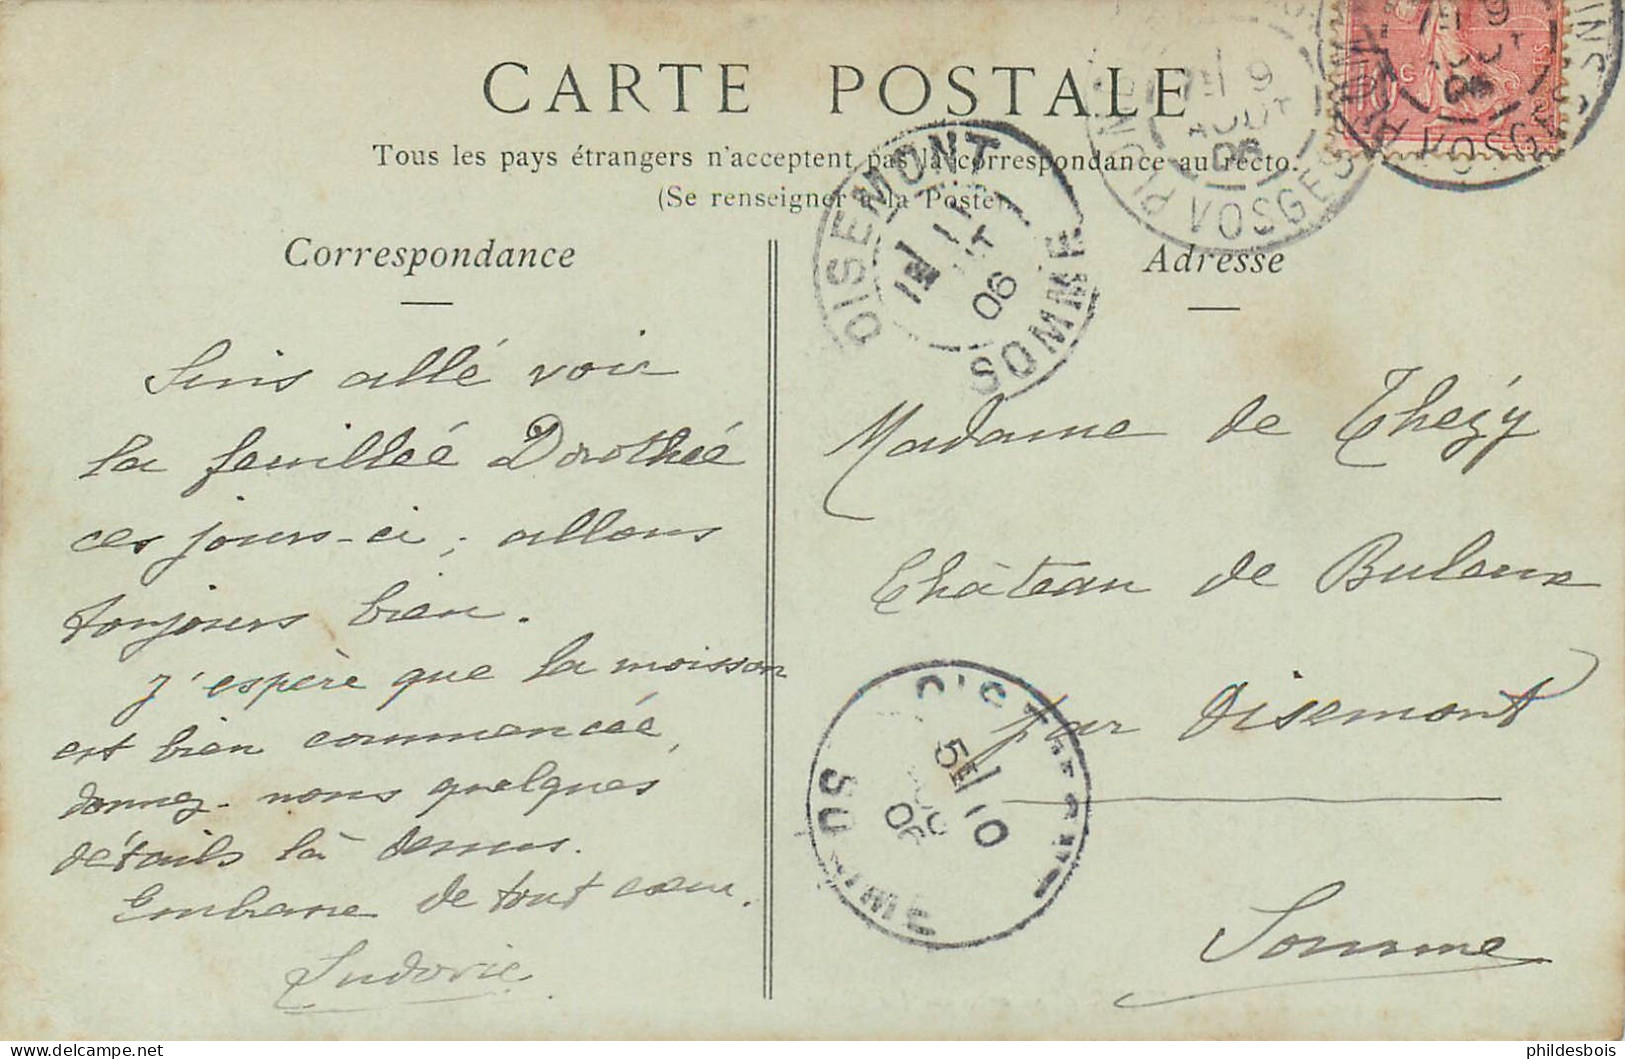 CARTE POSTALE
Tous les pays étrangers n'acceptent pas la correspondance au recto.
(Se renseigner à la Poste)
Correspondance
Suis allé voir
la feuillée Dorothée
ces jours-ci, allons
toujours bien.
J'espère que la moisson
est bien commencée,
donnez-nous quelques
détails là dessus.
Embrasse de tout cœur.
Ludovic
Adresse
Madame de Thézy
Château de Buleux
par Oisemont
Somme
OISEMONT
SOMME
06
VOSGES
9
AOUT
06
VOSGES
5E/10
06
phildesbois